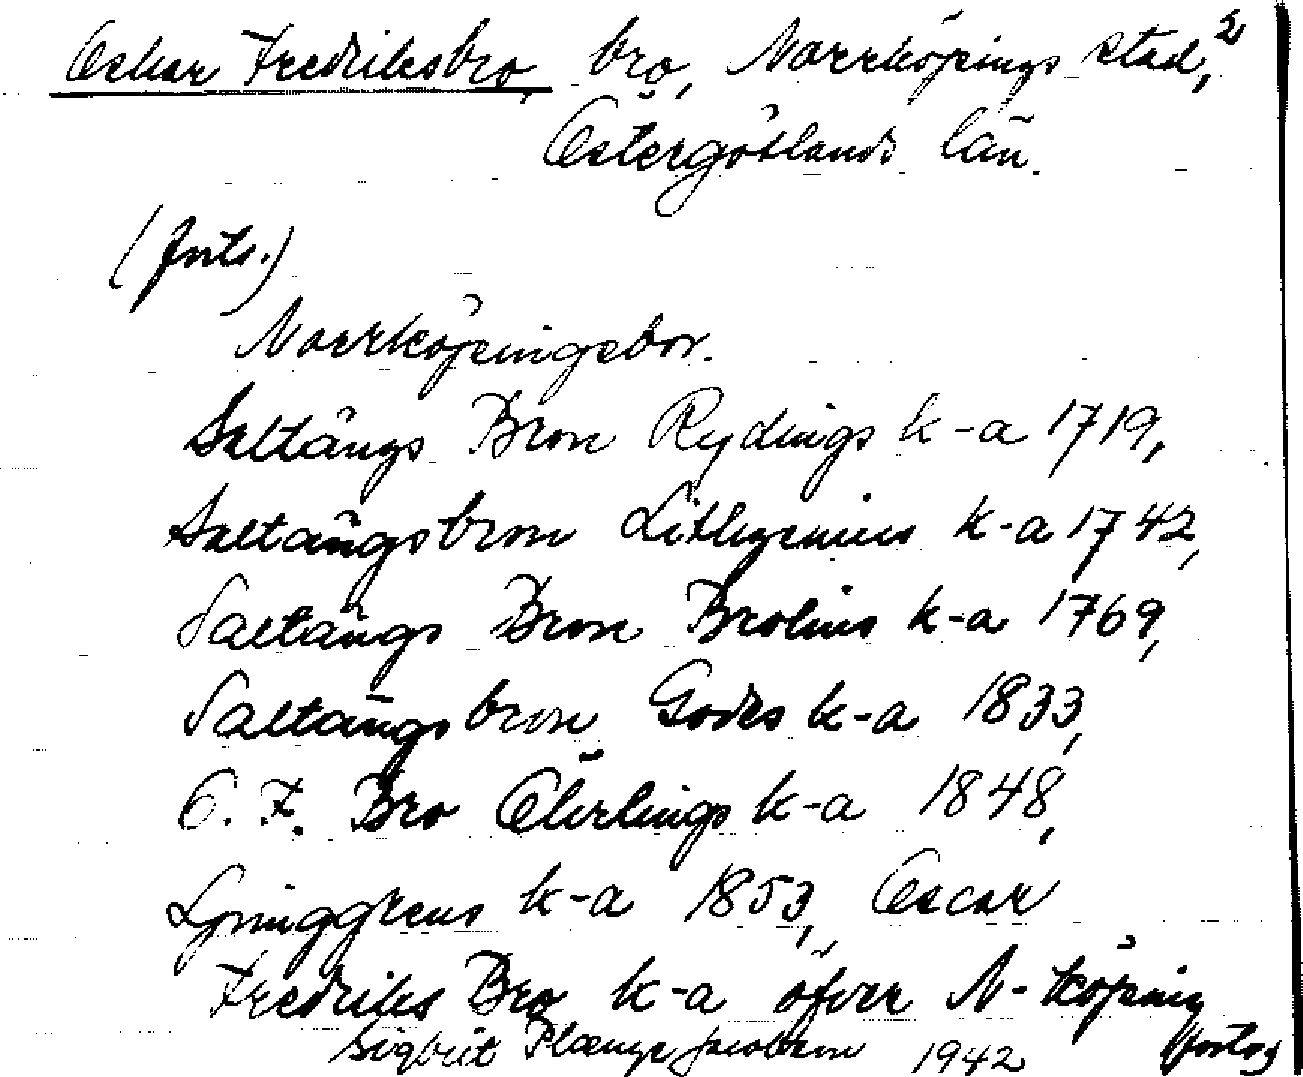 Oskar Fredriksbro, bro, Norrköpings stad, 2
Östergötlands län.
(forts.)
Norrköpingsbor.
Saltängs Bron Rydings k-a 1719,
Saltängsbron Lithzenius k-a 1742,
Saltängs Bron Brolins k-a 1769,
Saltängsbron Godes k-a 1833,
O. F. Bro Öhrlings k-a 1848,
Ljunggrens k-a 1853, Oscar
Fredriks Bro k-a öfver N-köping
Sigbrit Plænge Jacobson 1942 (forts)